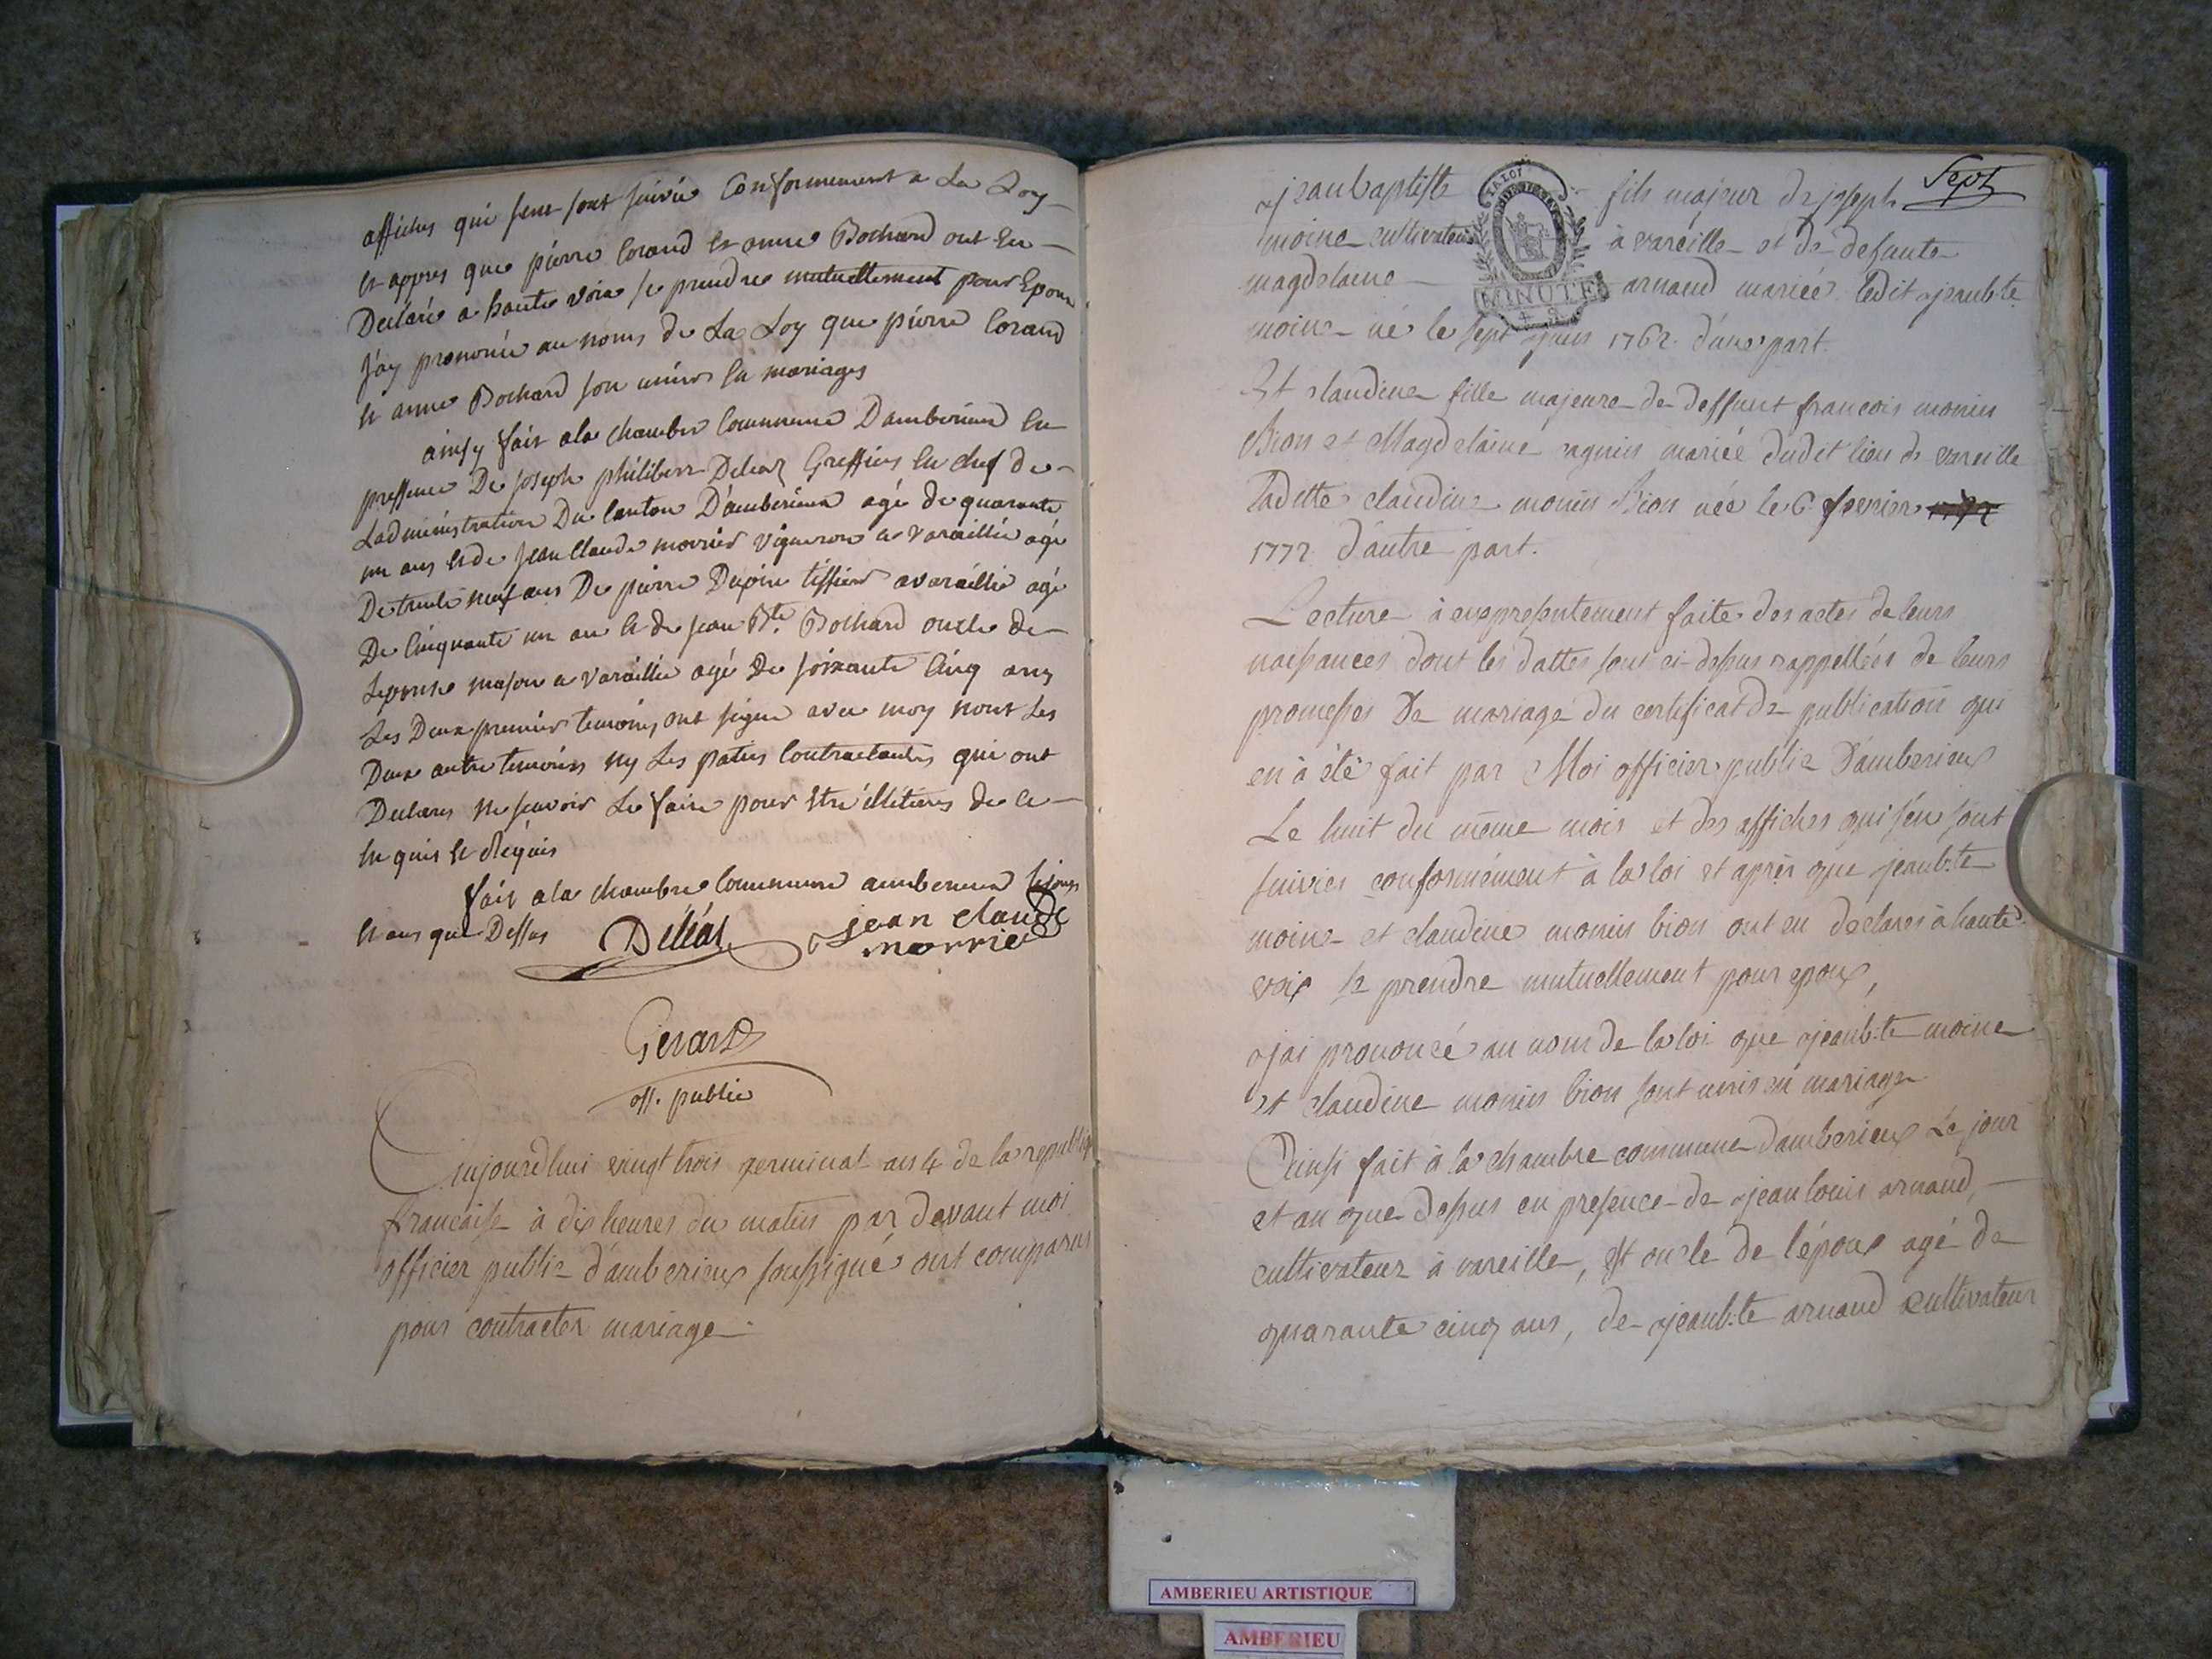 affiches qui sene sont suivie Conformement a La Loy
et appres que pierre Corand et anne Bochard ont Eu
Declaré a haute voix se prendre mutuellement pour Epoux
J'ay prononcée au noms de La Loy que pierre Corand
et anne Bochard son unies En mariages
ainsy fait a la chambre Commune D'amberieux En
pressence De joseph philibert Deléaz Greffier En chef de
L'administration Du Canton D'amberieux agé de quarante
un ans et de jean Claude morrier vigneron a varaillie agé
De trente neuf ans De pierre Dupin tissier a varaillie agé
De Cinquante un an et de jean Bte. Bochard oncle de
Lepouse mason a varaillie agé De soixante Cinq ans
Les Deux premier temoins ont signe avec moy nont Les
Deux autre temoins ny Les paties Contractantes qui ont
Declares ne scavoir Le faire pour etre illiteres de ce
Enquis et Réquis
fait a la chambre Commune amberieux Lejour
et ans que Dessus Deléaz jean claude
morrier
Gerard
off. public
Aujourdhui vingt trois germinal an 4 de la republiq
francaise à dix heures du matin par devant moi
officier public d'amberieux soussigné ont comparus
pour contracter mariage
Sept
jean baptiste fils majeur de joseph
LA LOI
moine cultivateur à vareille et de defunte
magdelaine arnaud mariée. ledit jean bte
MINUTE
moine né le sept juin 1762. d'une part.
Et claudine fille majeure de deffunt francois monin
Bion et Magdelaine agnin mariée dudit lieu de vareille
Ladette claudine monin Bion née le 6 fevrier
1772 d'autre part.
Lecture à eux presentement faite des actes de leurs
naissances dont les dattes sont ci-dessus rappellées de leurs
promesses De mariage du certificat de publication qui
en à été fait par Moi officier public D'amberieux
Le huit du même mois et des affiches qui s'en sont
suivies conformément à la loi et après que jean bte
moine et claudine monin bion ont eu déclarés à haute
voix se prendre mutuellement pour epoux,
j'ai prononcé au nom de la loi que jean b.te moine
et claudine monin bion sont unis en mariage
Ainsi fait à la chambre commune damberieux Le jour
et an que dessus en presence de jean louis arnaud,
cultivateur à vareille, et oncle de l'époux agé de
quarante cinq ans, de jean b.te arnaud cultivateur
AMBERIEU ARTISTIQUE
AMBERIEU